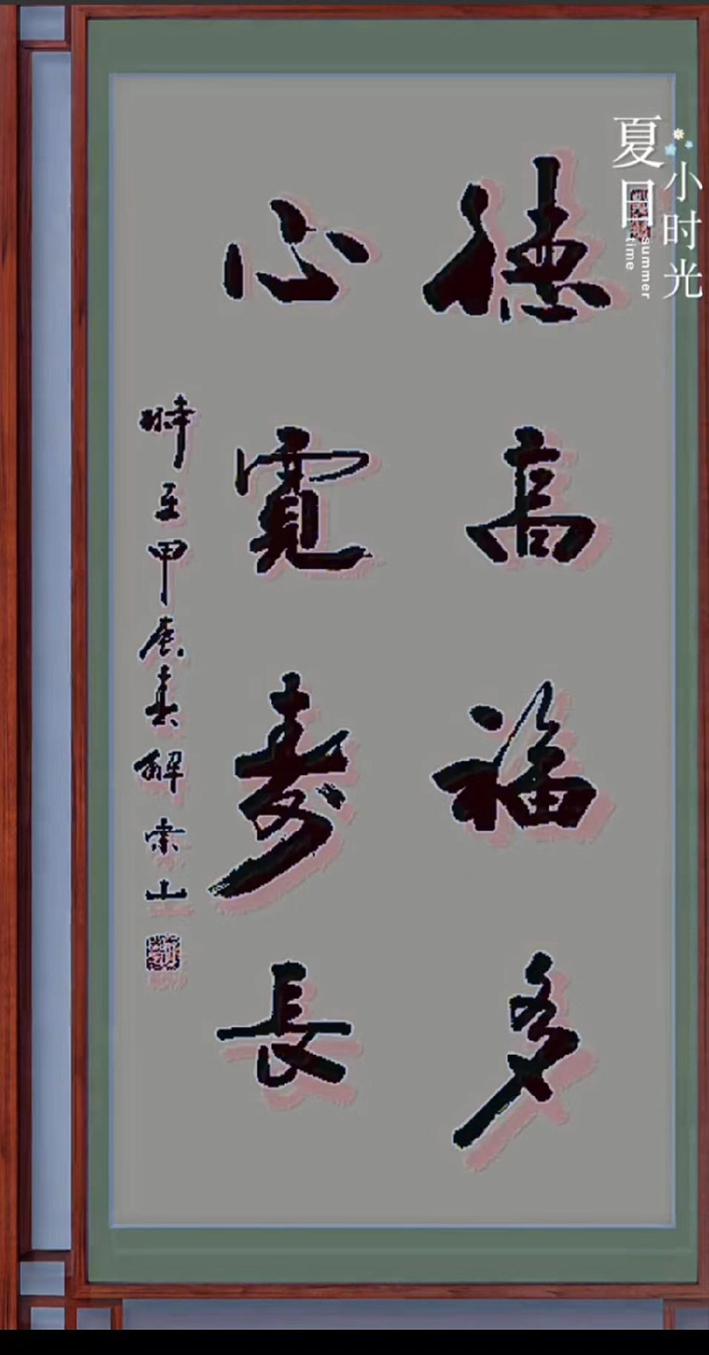 德高福多
心寬壽長
時在甲辰春解崇山
夏日
小时光
summer
time